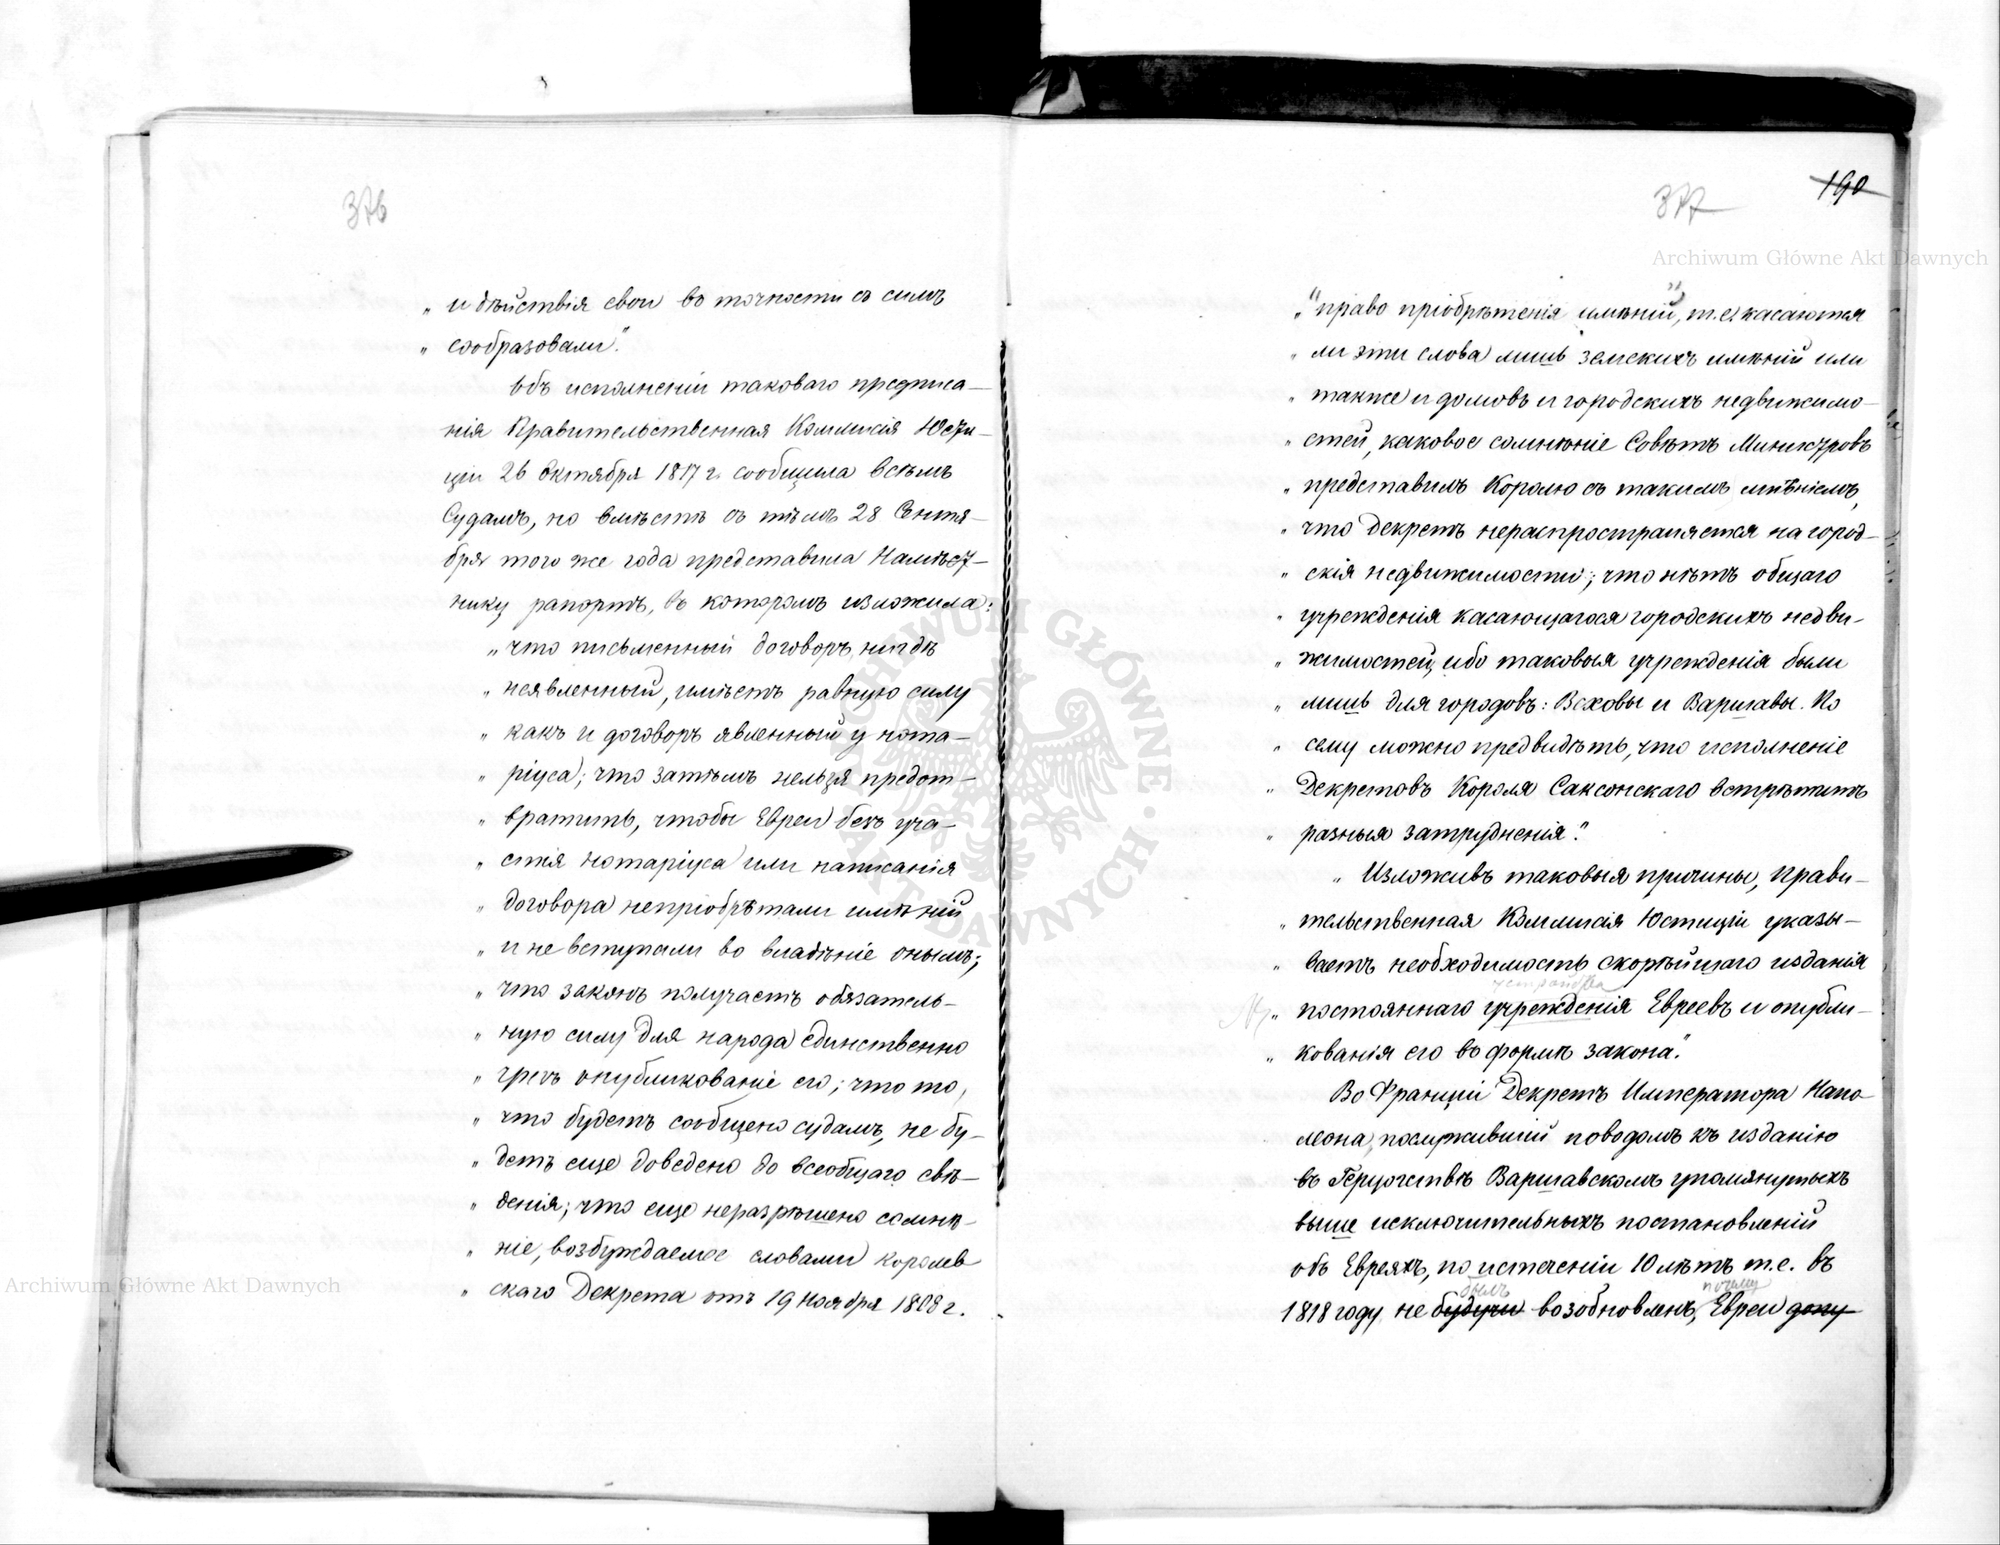 376
„ и дѣйствія свои во точности съ симъ
„ сообразовали“.
Объ исполненіи таковаго предписа—
нія Правительственная Коммисія Юсти—
ціи 26 Октября 1817 г. сообщила всѣмъ
Судамъ, но вмѣстѣ съ тѣмъ 28 Сентя—
бря того же года представила Намѣст—
нику рапортъ, въ которомъ изложила:
„ что письменный договоръ, нигдѣ
„ неявленный, имѣетъ равную силу
„ какъ и договоръ явленный у нота—
„ ріуса; что затѣмъ нельзя предот—
„ вратить, чтобы Евреи безъ уча—
„ стія нотаріуса или написанія
„ договора непріобрѣтали имѣній
„ и не вступали во владѣніе онымъ;
„ что законъ получаетъ обязатель—
„ ную силу для народа единственно
„ чрезъ опубликованіе его; что то,
„ что будетъ сообщено судамъ, не бу—
„ детъ еще доведено до всеобщаго свѣ—
„ денія; что еще неразрѣшено сомнѣ—
„ ніе, возбуждаемое словами Королев
„ скаго Декрета отъ 19 Ноября 1808 г.
377
190
„ “право пріобрѣтенія имѣній”, т.е. касаются
„ ли эти слова лишь земскихъ имѣній или
„ также и домовъ и городскихъ недвижимо—
„ стей, каковое сомнѣніе Совѣтъ Министровъ
„ представилъ Королю съ такимъ мнѣніемъ,
„ что Декретъ нераспространяется на город—
„ скія недвижимости; что нѣтъ общаго
„ учрежденія касающагося городскихъ недви—
„ жимостей, ибо таковыя учрежденія были
„ лишь для городовъ: Всховы и Варшавы. По
„ сему можно предвидѣть, что исполненіе
„ Декретовъ Короля Саксонскаго встрѣтитъ
„ разныя затрудненія“.
„ Изложивъ таковыя причины, Прави—
„ тельственная Коммисія Юстиціи указы—
„ ваетъ необходимость скорѣйшаго изданія
„ постояннаго учрежденія Евреевъ и опубли—
„ кованія его въ формѣ закона“.
Во Франціи Декретъ Императора Напо—
леона, послужившій поводомъ къ изданію
въ Герцогствѣ Варшавскомъ упомянутыхъ
выше исключительныхъ постановленій
объ Евреяхъ, по истеченіи 10 лѣтъ т.е. въ
былъ почему
1818 году не будучи возобновленъ, Евреи допу
Archiwum Główne Akt Dawnych
Archiwum Główne Akt Dawnych
ARCHIWUM GŁÓWNE AKT DAWNYCH